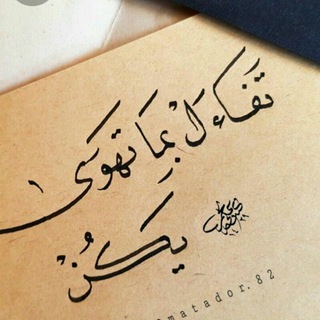 تَفَاءَلْ بِمَا تَهْوَى
يَكُنْ
matador.82